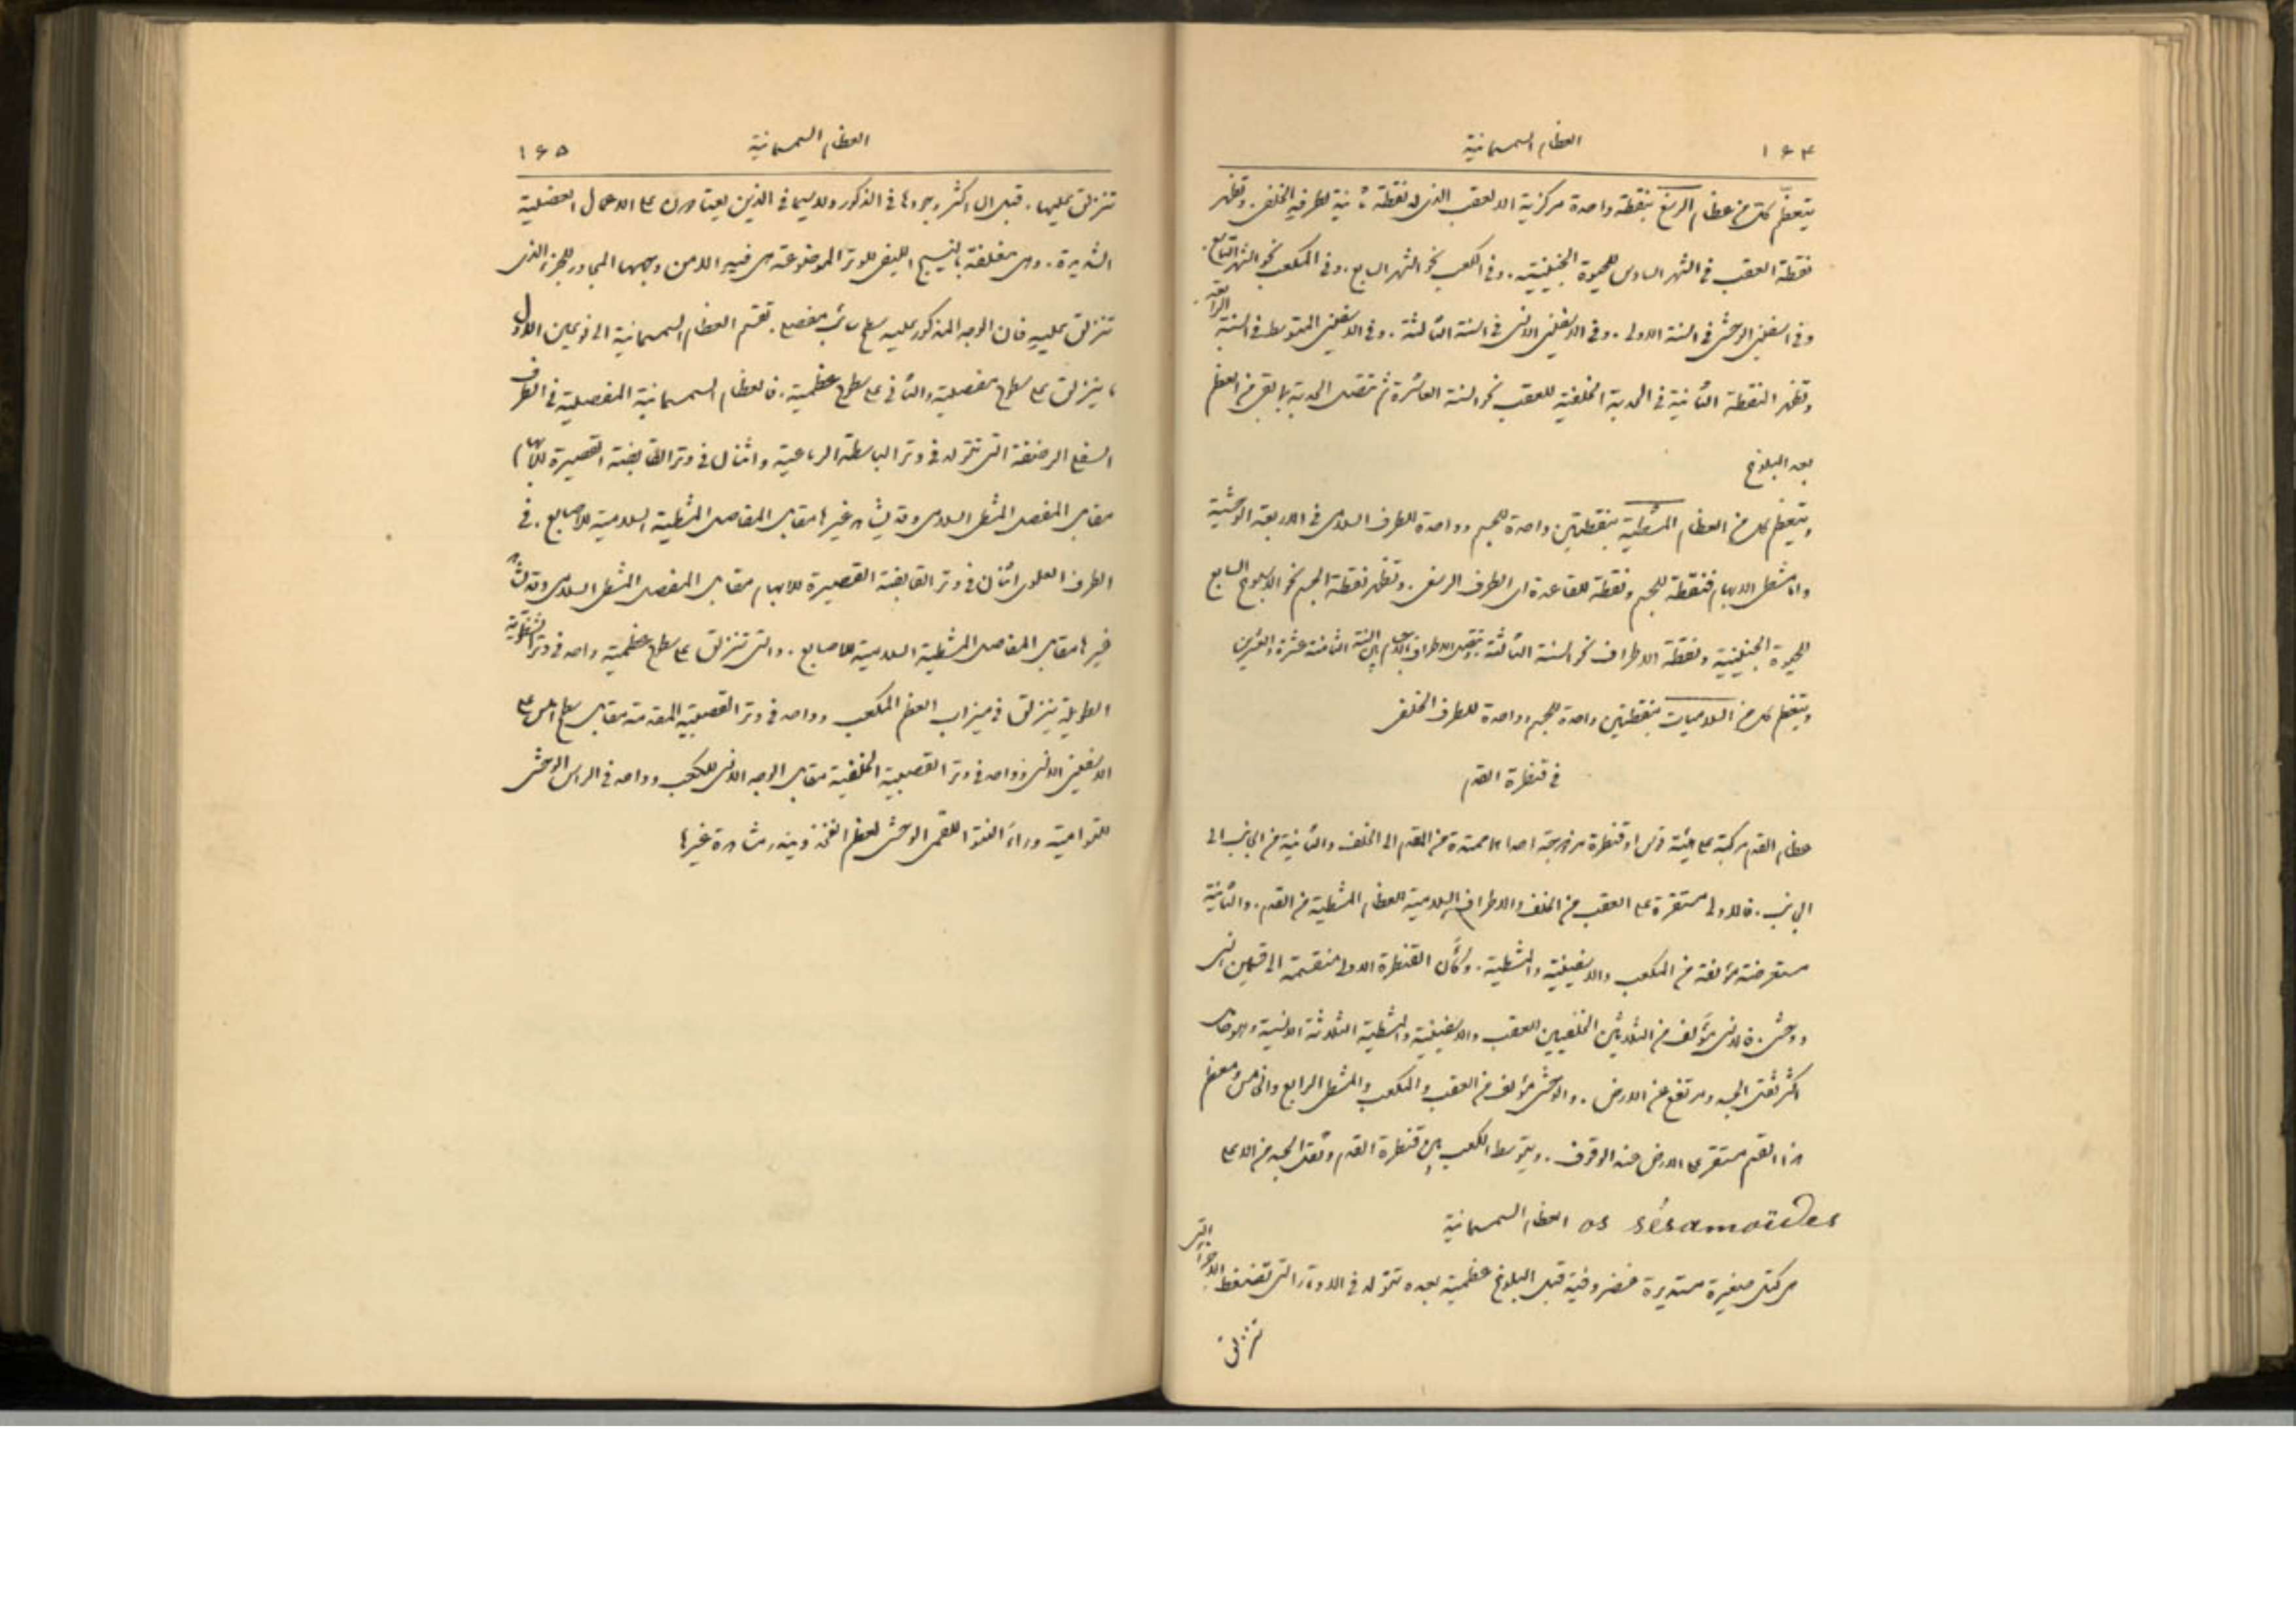 ١٦٤ العظام السمسمانية
يتعظّم كل من عظام الرسغ بنقطة واحدة مركزية الا العقب الذى له نقطة ثانية لطرفه الخلفى. وتظهر
نقطة العقب فى الشهر السادس للحيوة الجنينية. وفى الكعب نحو الشهر السابع. وفى المكعب نحو الشهر التاسع.
وفى اسفينى الوحشى فى السنة الاولى. وفى الاسفينى الانسى فى السنة الثالثة. وفى الاسفينى المتوسط فى السنة الرابعة.
وتظهر النقطة الثانية فى الحدبة الخلفية للعقب نحو السنة العاشرة ثم تتصل الحدبة بما بقى من العظم
بعد البلوغ
ويتعظم كل من العظام المشطية بنقطتين واحدة للجسم وواحدة للطرف السلامى فى الاربعة الوحشية
واما مشطى الابهام فنقطة للجسم ونقطة للقاعدة اى الطرف الرسغى. وتظهر نقطة الجسم نحو الاسبوع السابع
للحيوة الجنينية ونقطة الاطراف نحو السنة الثالثة وتتصل الاطراف بالاجسام بين السنة الثامنة عشرة والعشرين
ويتعظم كل من السلاميات بنقطتين واحدة للجسم وواحدة للطرف الخلفى
فى قنطرة القدم
عظام القدم مركبة على هيئة قوس او قنطرة مزدوجة احداها ممتدة من المقدم الى الخلف والثانية من الجانب الى
الجانب. فالاولى مستقرة على العقب من الخلف والاطراف السلامية للعظام المشطية من القدم. والثانية
مستعرضة مؤلفة من المكعب والاسفينية والمشطية. وكأن القنطرة الاولى منقسمة الى قسمين انسى
ووحشى. فالانسى مؤلف من الثلاثين الخلفيين للعقب والاسفينية والمشطية الثلاثة الانسية وهو حامل
اكثر ثقل الجسد ومرتفع عن الارض. والوحشى مؤلف من العقب والمكعب والمشطى الرابع والخامس ومعظم
هذا القسم مستقر على الارض عند الوقوف. ويتوسط الكعب بين قنطرة القدم وثقل الجسد من الاعلى
os sésamoïdes العظام السمسمانية
هى كتل صغيرة مستديرة غضروفية قبل البلوغ عظمية بعده تتولد فى الاوتار التى تضغط الاجزاء التى
تنزلق
العظام السمسمانية ١٦٥
تنزلق عليها. قيل انها اكثر وجودها فى الذكور ولا سيما فى الذين يعتادون على الاعمال العضلية
الشديدة. وهى مغلفة بالنسيج الليفى للوتر الموضوعة هى فيه الا من وجهها المجاور للجزء الذى
تنزلق عليه فان الوجه المذكور عليه سطح سائب مفصلى. تقسم العظام السمسمانية الى نوعين الاول
ما ينزلق على سطوح مفصلية والثانى على سطوح عظمية. فالعظام السمسمانية المفصلية فى الطرف
السفلى الرضفة التى تتولد فى وتر الباسطة الرباعية واثنان فى وتر القابضة القصيرة للابهام
مقابل المفصل المشطى السلامى وقد يشاهد غيرها مقابل المفاصل المشطية السلامية للاصابع. فى
الطرف العلوى اثنان فى وتر القابضة القصيرة للابهام مقابل المفصل المشطى السلامى وقد يشاهد
غيرها مقابل المفاصل المشطية السلامية للاصابع. والتى تنزلق على سطوح عظمية واحد فى وتر الشظوية
الطويلة ينزلق فى ميزاب العظم المكعب وواحد فى وتر القصبية المقدمة مقابل سطح املس على
الاسفينى الانسى وواحد فى وتر القصبية الخلفية مقابل الوجه الانسى للكعب وواحد فى الراس الوحشى
للتوامية وراء النتوء اللقمى الوحشى لعظم الفخذ ويندر مشاهدة غيرها